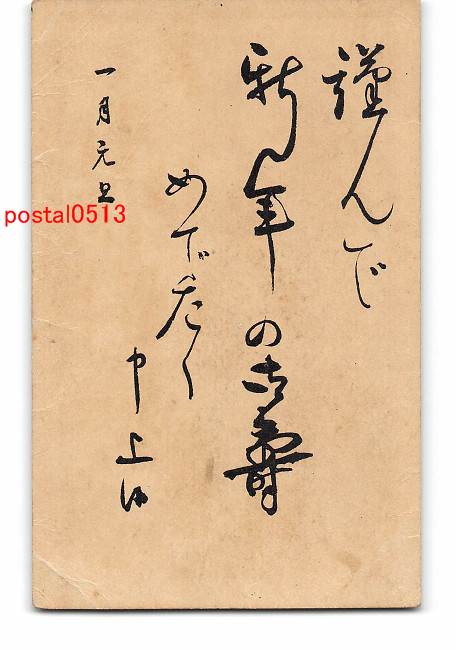 謹んで
新年の吉壽
めでたく
申上候
一月元旦
postal0513